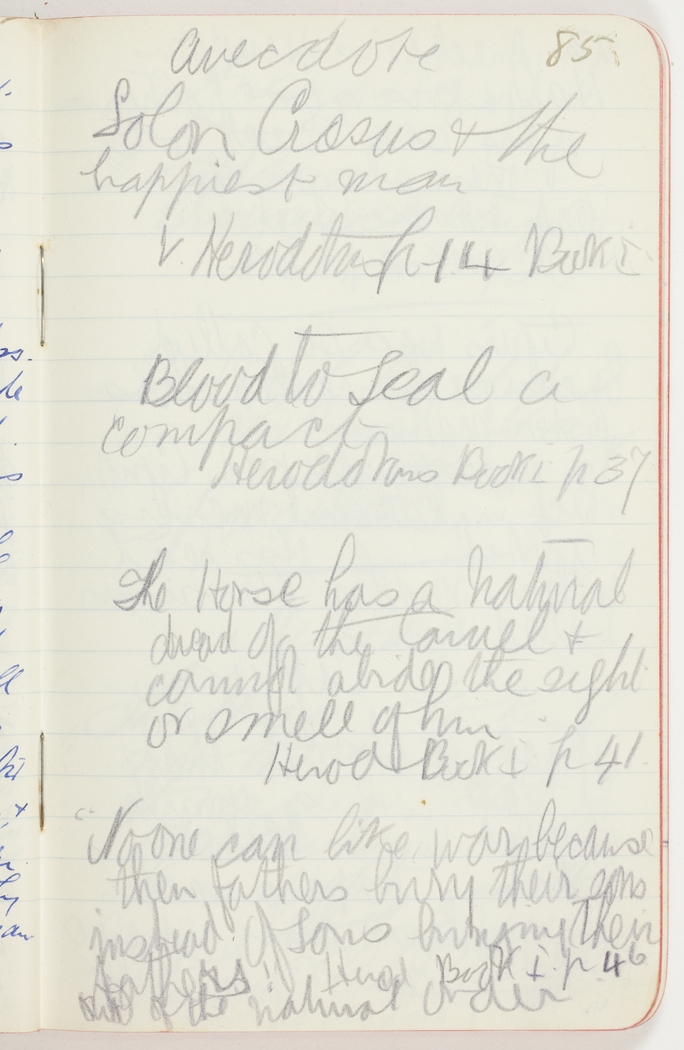 85
Anecdote
Solon Crœsus & the
happiest man
V Herodotus p 14 Book I
Blood to seal a
compact
Herodotus Book I p 37
The Horse has a natural
dread of the Camel &
cannot abide the sight
or smell of him
Herod Book I p 41.
"No one can like war because
then fathers bury their sons
instead of sons burying their
fathers" Herod Book I. p 46
out of the natural order